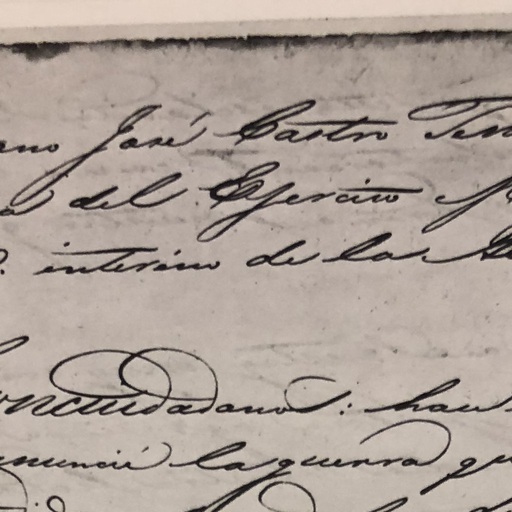 ano José Castro Ten
a del Ejercito y
interino de la
Conciudadanos: hace
anuncié la guerra qu